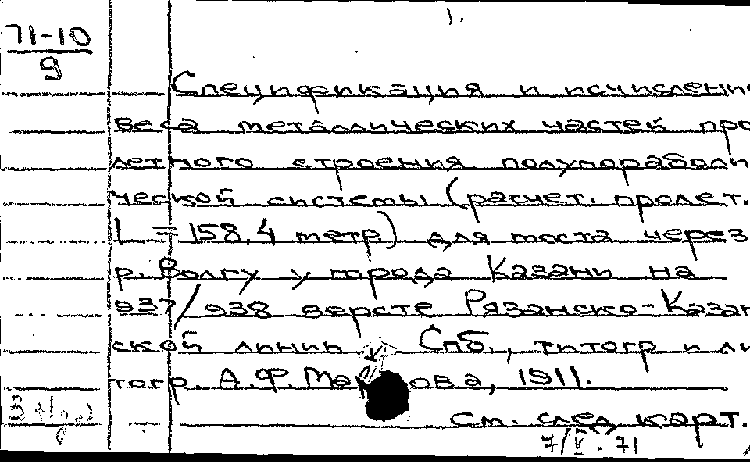 1.
71-10
9
Спецификация и исчислени
веса металлических частей про
летного строения полупараболи
ческой системы (расчет. пролет.
l = 158,4 метр) для моста через
р. Волгу у города Казани на
937/938 версте Рязанско-Казан
ской линии Спб., типогр и ли
тогр. А.Ф. Ма ова, 1911.
см. след карт.
7/V. 71